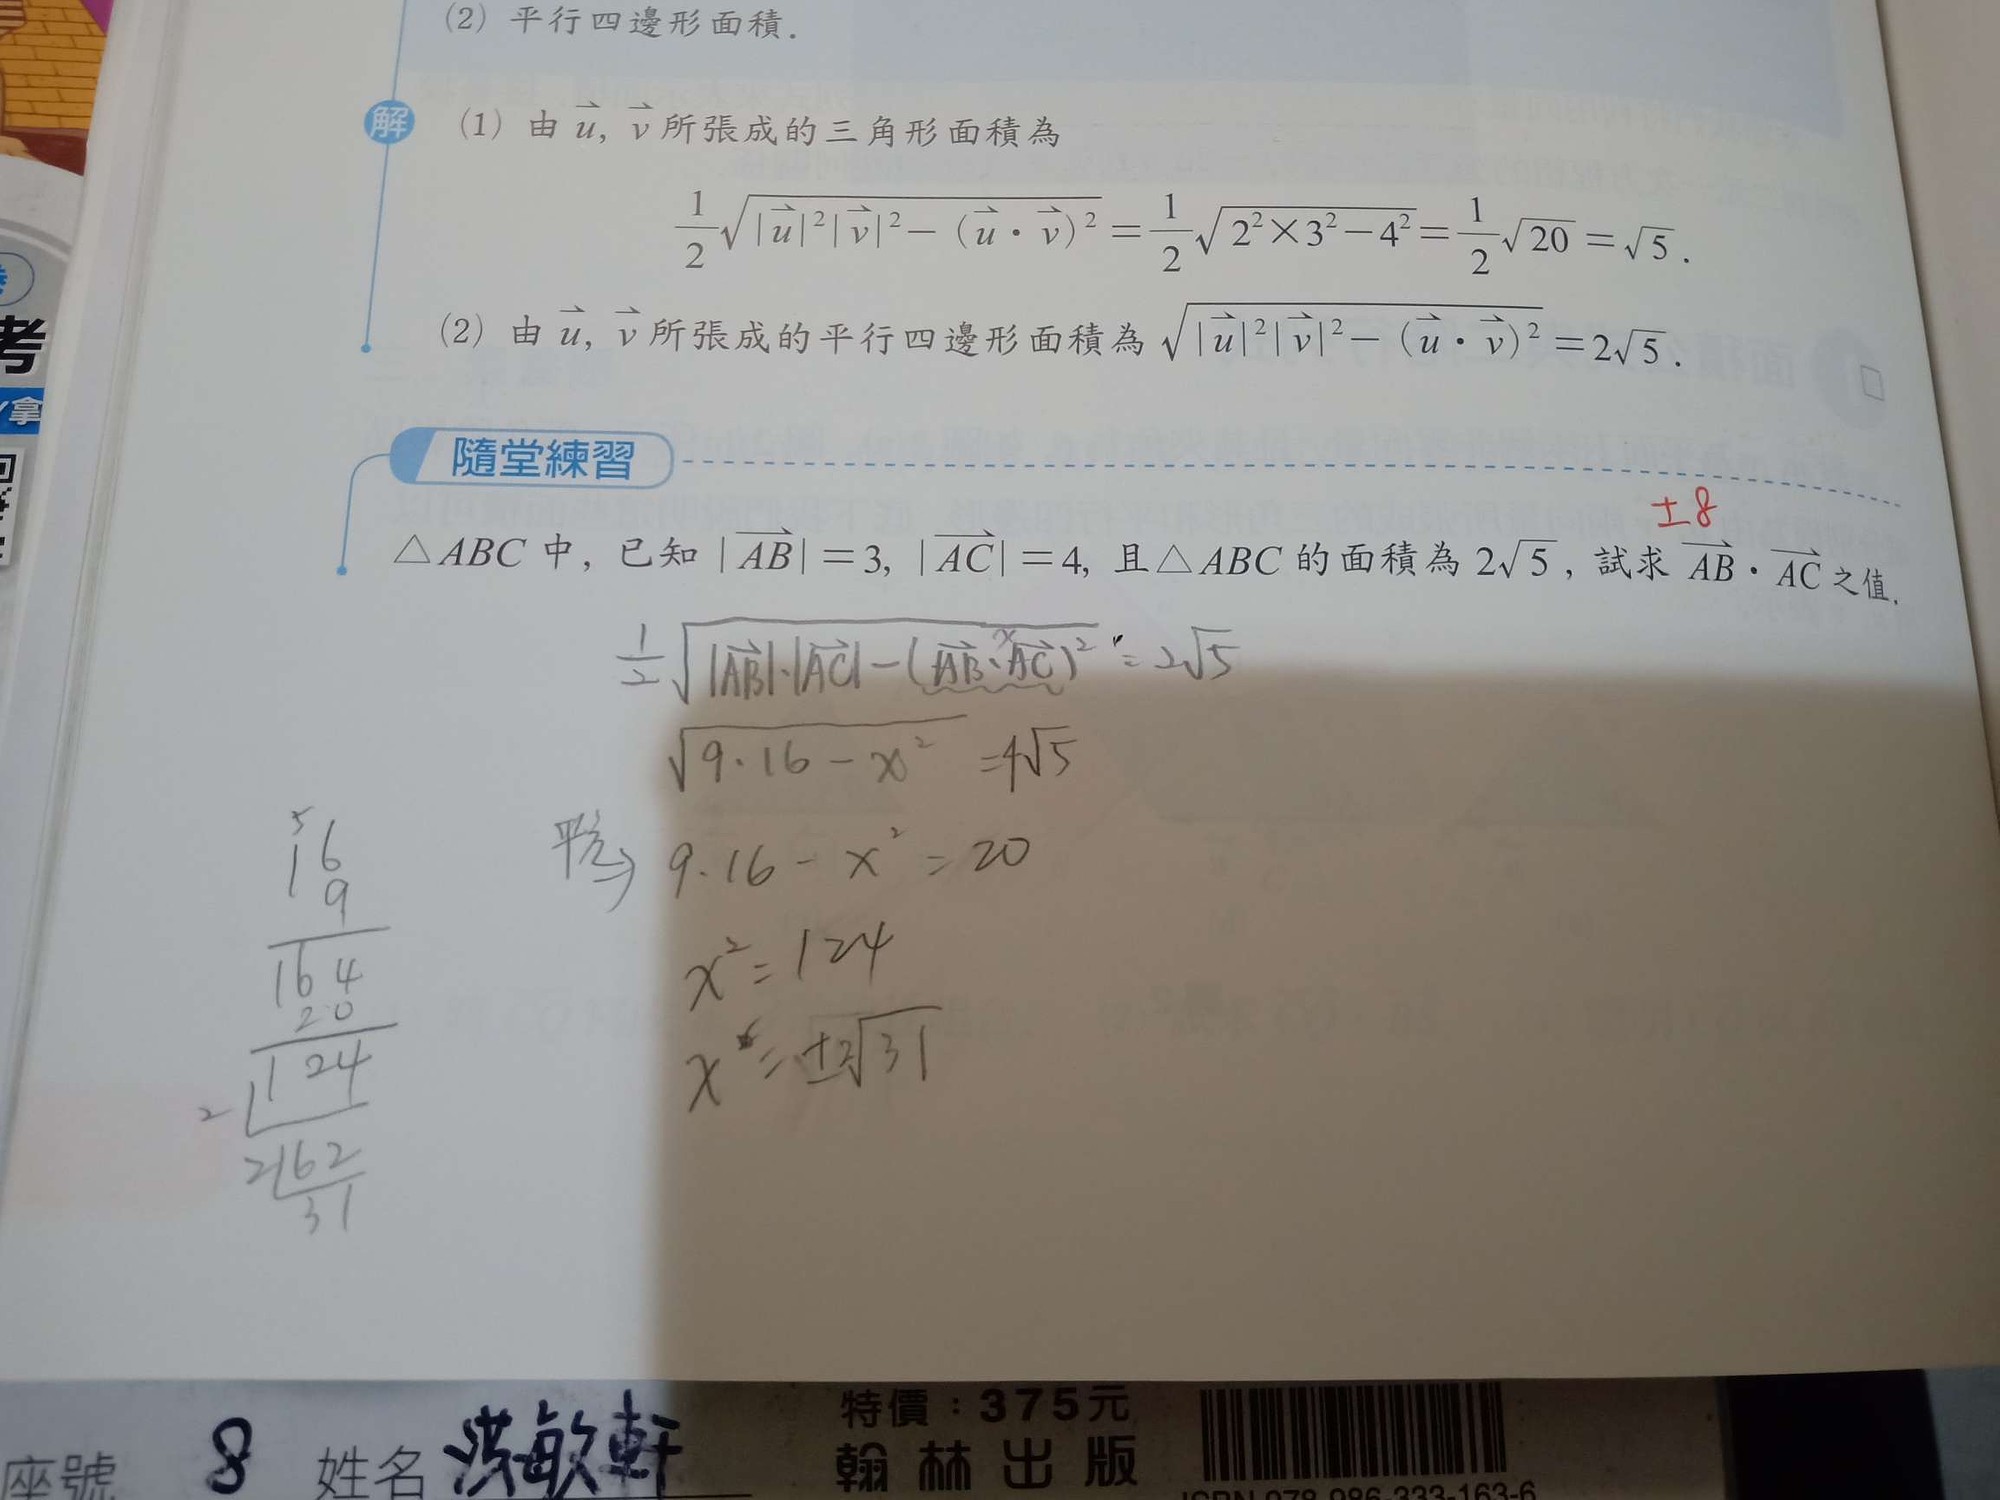 (2) 平行四邊形面積.
解 (1) 由 u⃑, v⃑ 所張成的三角形面積為
1/2 √(|u⃑|²|v⃑|²－(u⃑・v⃑)²)＝1/2 √(2²×3²－4²)＝1/2 √20＝√5.
(2) 由 u⃑, v⃑ 所張成的平行四邊形面積為 √(|u⃑|²|v⃑|²－(u⃑・v⃑)²)＝2√5.
隨堂練習
±8
△ABC 中, 已知 |AB⃑|＝3, |AC⃑|＝4, 且△ABC 的面積為 2√5, 試求 AB⃑・AC⃑ 之值.
1/2 √(|AB⃑|·|AC⃑|－(AB⃑·AC⃑)²) = 2√5
x
√(9·16－x²) = 4√5
平方→ 9·16－x² = 20
x² = 124
x = ±2√31
5
16
9
164
20
2 124
2 62
31
考
拿
回
座號 8 姓名 洪敏軒
特價：375元
翰林出版
ISBN 978-986-333-163-6